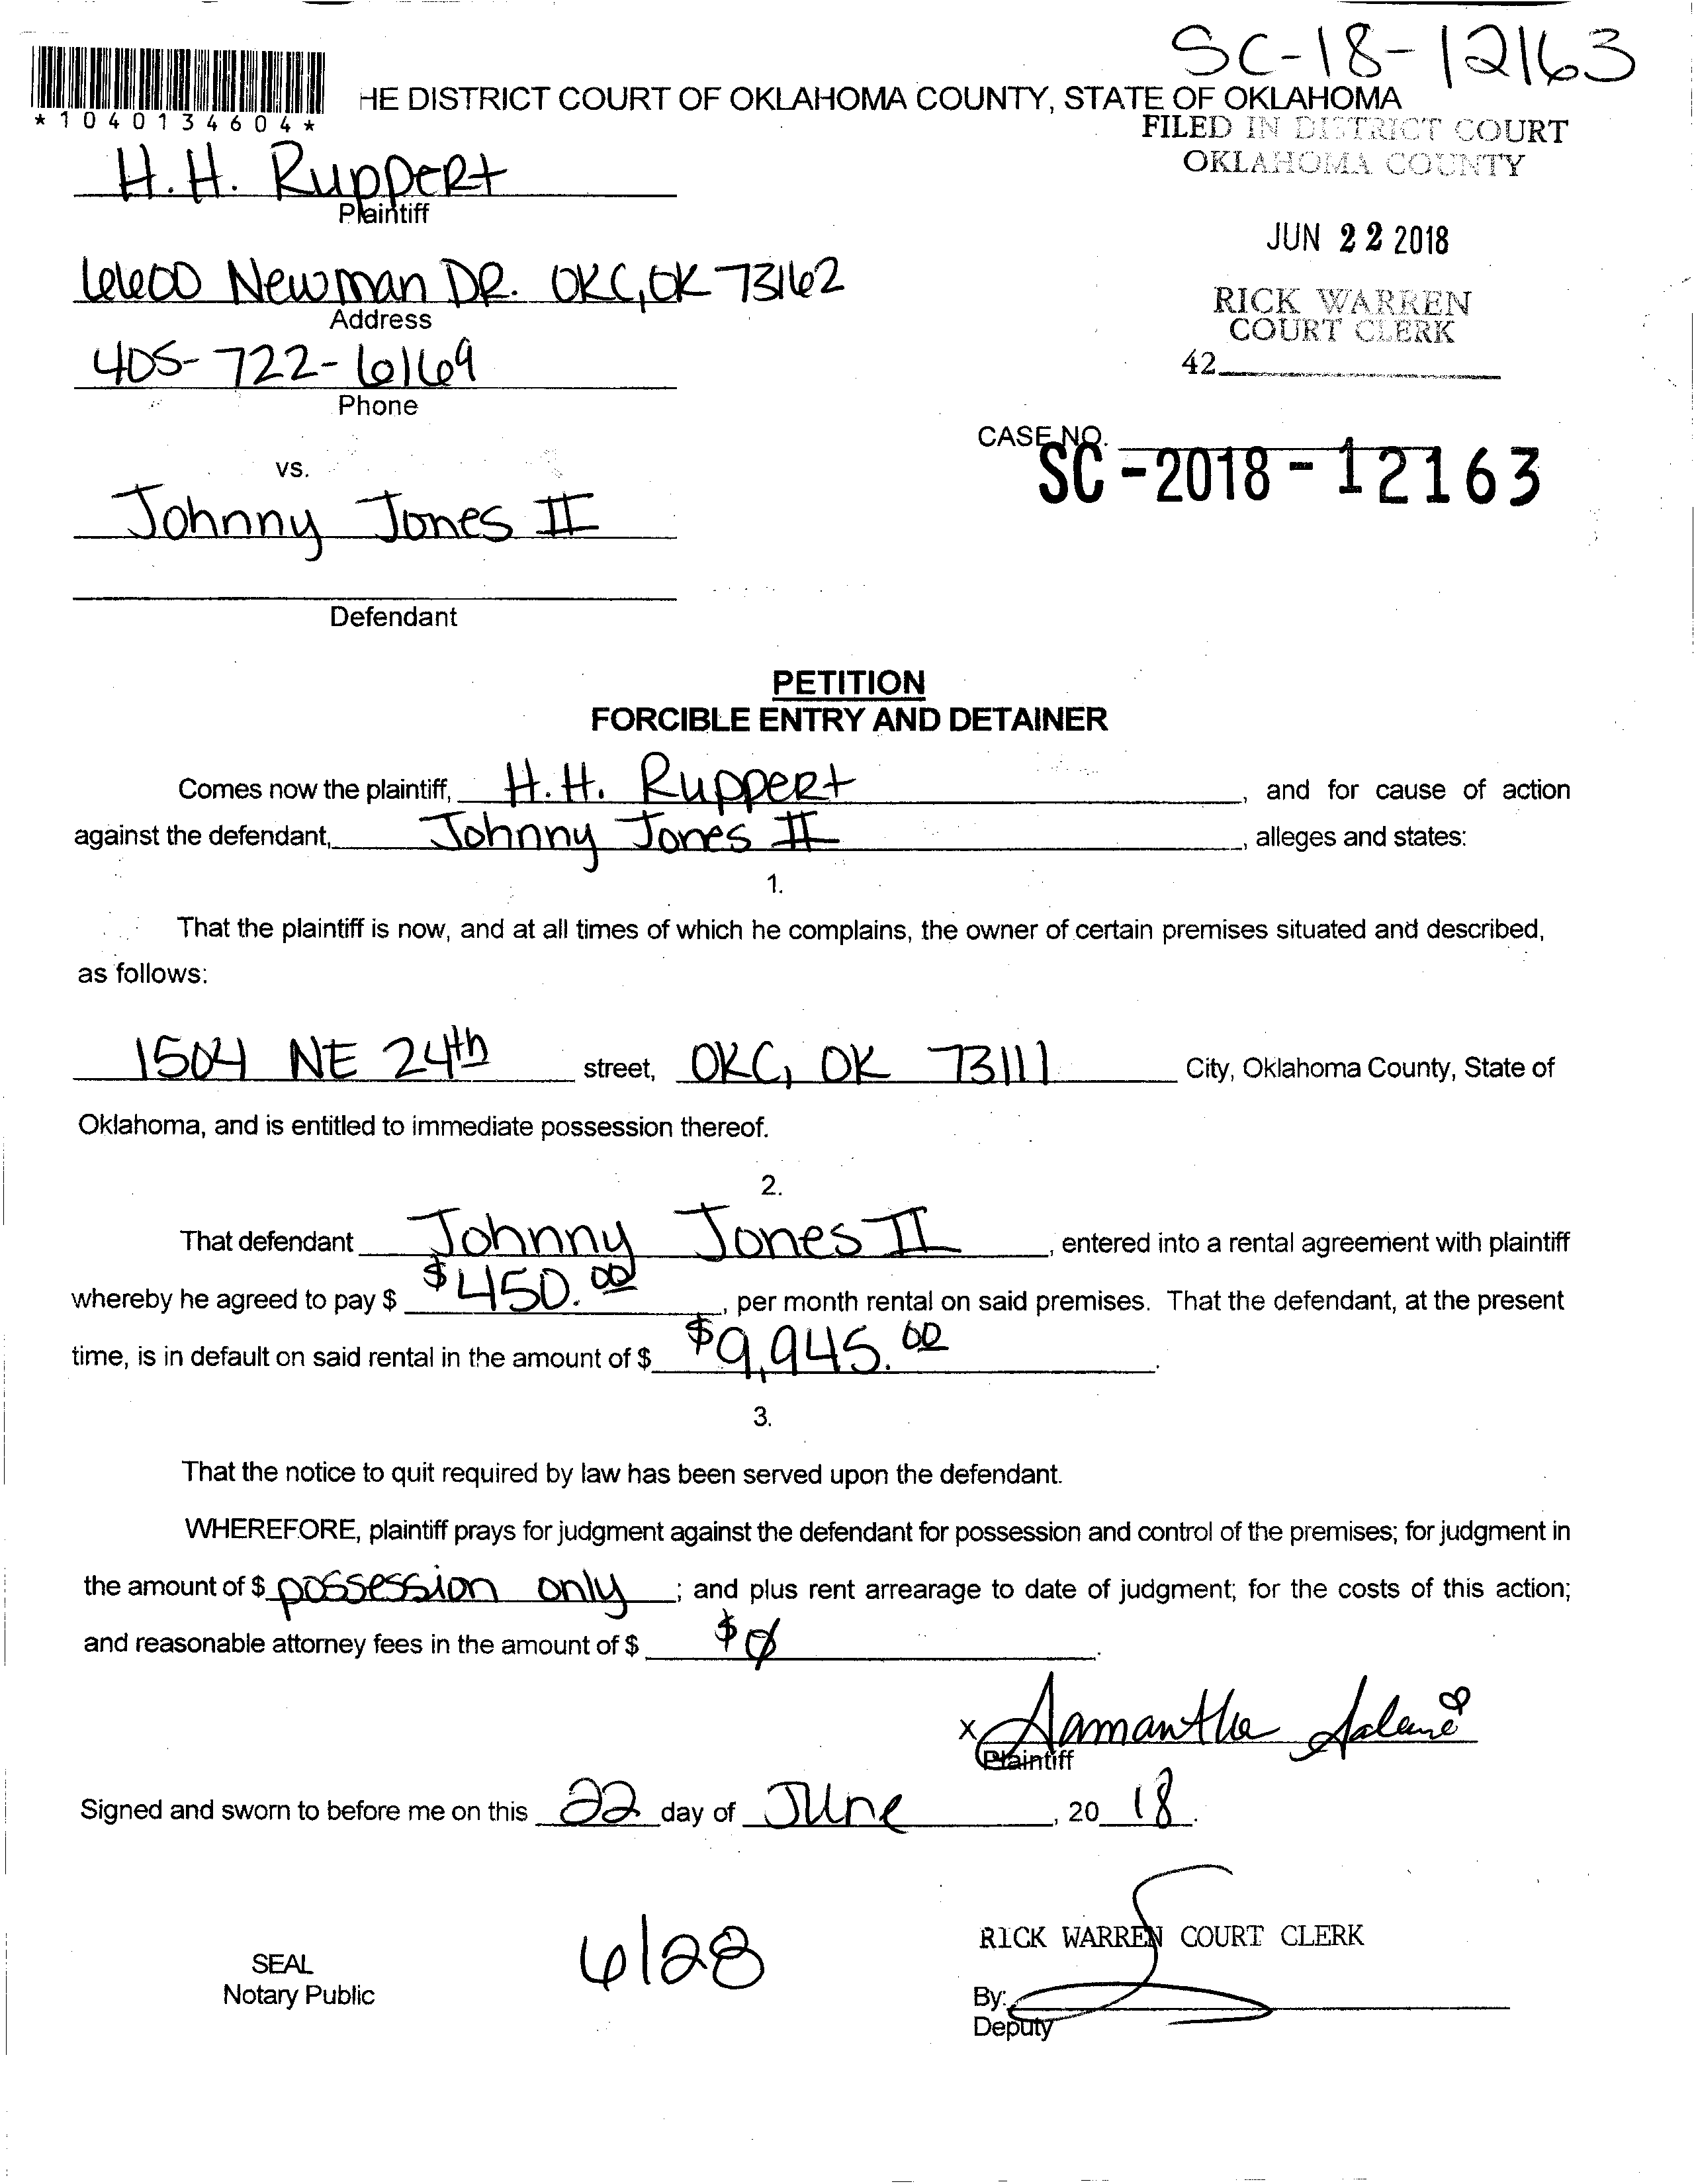 SC-18-12163
*1040134604*
HE DISTRICT COURT OF OKLAHOMA COUNTY, STATE OF OKLAHOMA
FILED IN DISTRICT COURT
OKLAHOMA COUNTY
H.H. Ruppert
Plaintiff
JUN 22 2018
6600 Newman DR. OKC, OK 73162
Address
RICK WARREN
COURT CLERK
405-722-6169
42
Phone
CASE NO.
SC-2018-12163
vs.
Johnny Jones II
Defendant
PETITION
FORCIBLE ENTRY AND DETAINER
Comes now the plaintiff, H.H. Ruppert, and for cause of action
against the defendant, Johnny Jones II, alleges and states:
1.
That the plaintiff is now, and at all times of which he complains, the owner of certain premises situated and described,
as follows:
1504 NE 24th street, OKC, OK 73111 City, Oklahoma County, State of
Oklahoma, and is entitled to immediate possession thereof.
2.
That defendant Johnny Jones II, entered into a rental agreement with plaintiff
whereby he agreed to pay $ $450.00, per month rental on said premises. That the defendant, at the present
time, is in default on said rental in the amount of $ $9,945.00.
3.
That the notice to quit required by law has been served upon the defendant.
WHEREFORE, plaintiff prays for judgment against the defendant for possession and control of the premises; for judgment in
the amount of $ possession only; and plus rent arrearage to date of judgment; for the costs of this action;
and reasonable attorney fees in the amount of $ $0.
x Samantha
Plaintiff
Signed and sworn to before me on this 22 day of June, 20 18.
6/28
RICK WARREN COURT CLERK
SEAL
Notary Public
By:
Deputy